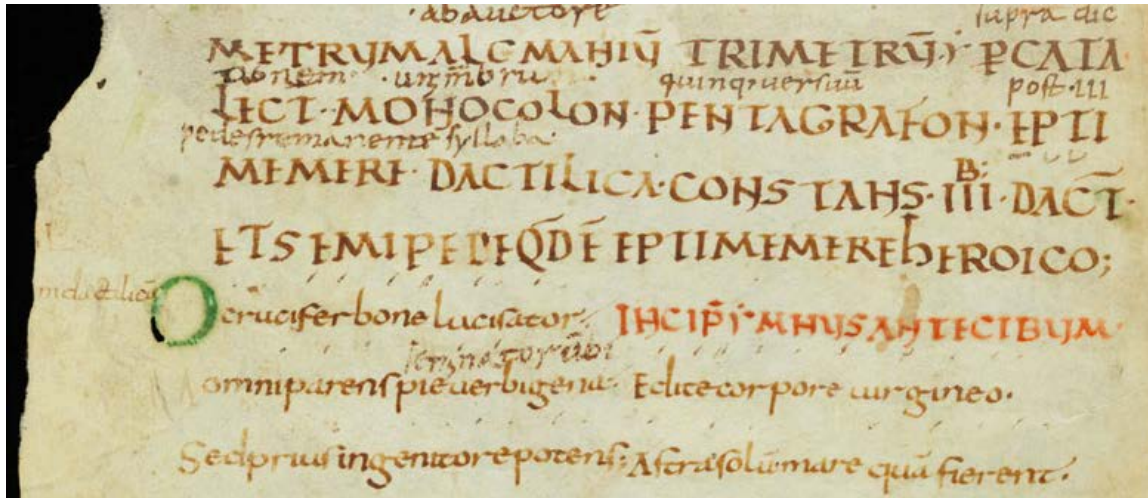 ab auctore supra dic
METRUM ALCMANIU̅ TRIMETRU̅ P CATA
quinq; versuu̅ post · III
LECT · MONOCOLON · PENTAGRAFON · EPTI
pedes remanente syllaba
MEMERE · DACTILICA · CONSTANS · III · DACT̅ ·
ET SEMIPEDE Q̅D Ē EPTIMEMERE hEROICO;
O crucifer bone lucisator · INCIP̅ YMNUS ANTE CIBUM
omniparens pie verbigena · Edite corpore virgineo ·
Sed prius in genitore potens; Astra solu̅ mare qua̅ fierent ·